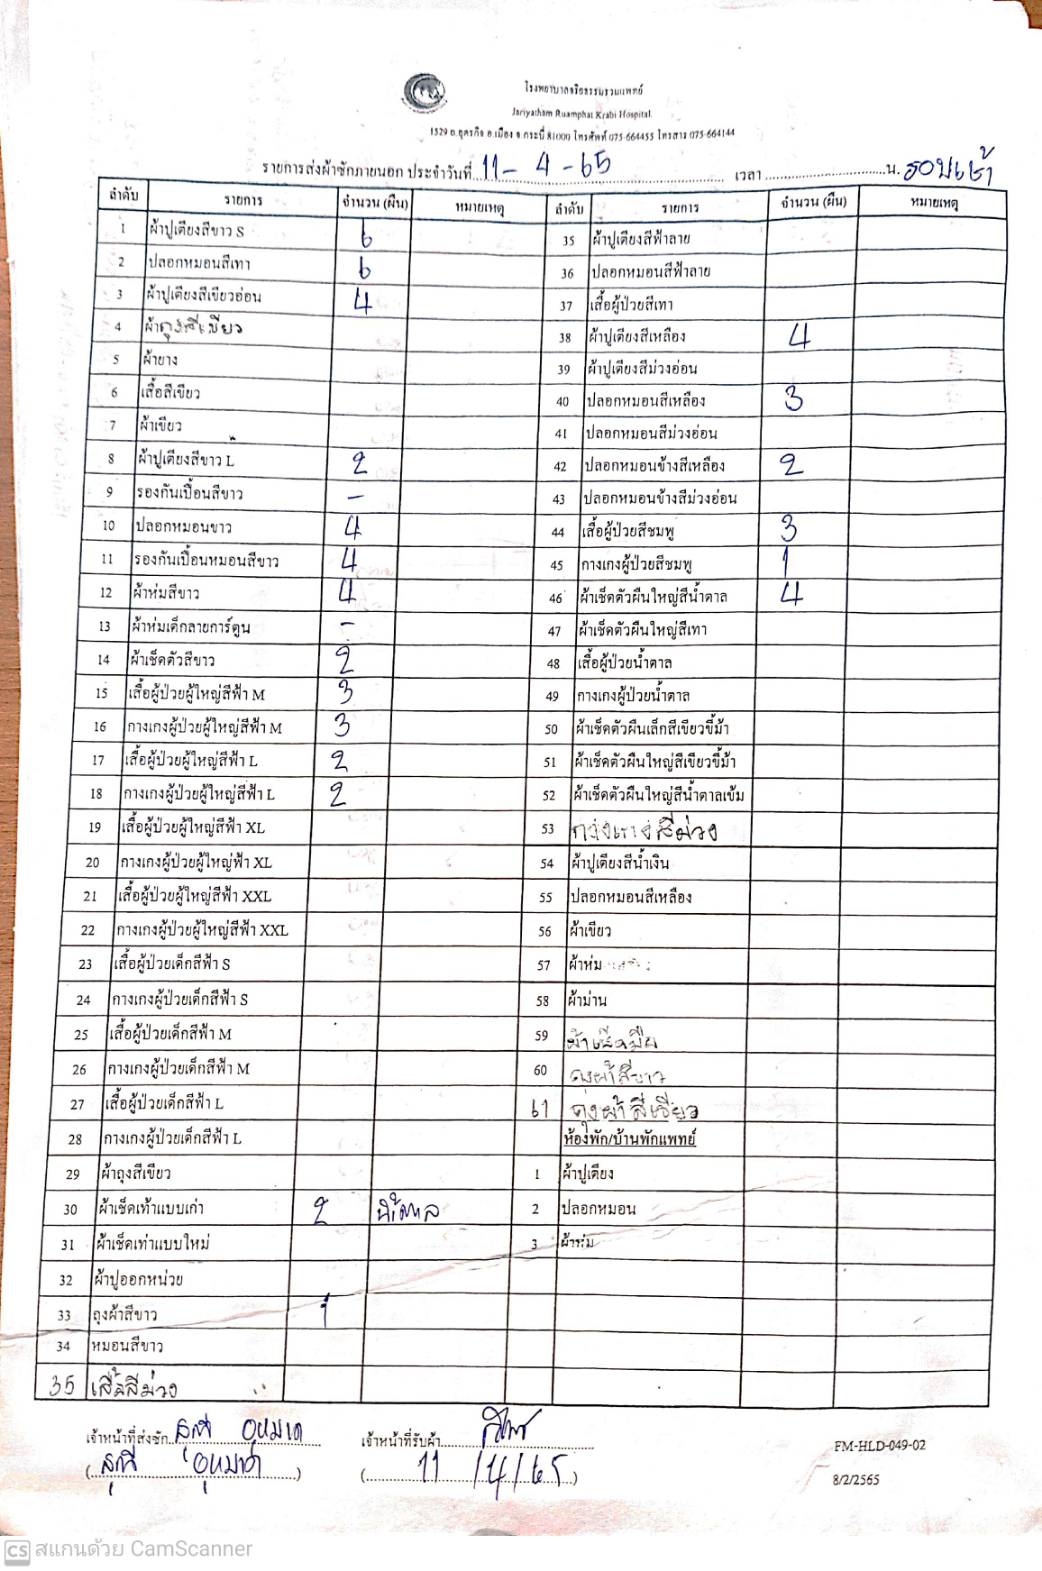 โรงพยาบาลจริยธรรมรวมแพทย์
Jariyatham Ruamphat Krabi Hospital
1529 ถ.อุตรกิจ อ.เมือง จ.กระบี่ 81000 โทรศัพท์ 075-664455 โทรสาร 075-664144
รายการส่งผ้าซักภายนอก ประจำวันที่ 11-4-65 เวลา น. รอบเช้า
ลำดับ รายการ จำนวน (ผืน) หมายเหตุ ลำดับ รายการ จำนวน (ผืน) หมายเหตุ
1 ผ้าปูเตียงสีขาว S 6 35 ผ้าปูเตียงสีฟ้าลาย
2 ปลอกหมอนสีเทา 6 36 ปลอกหมอนสีฟ้าลาย
3 ผ้าปูเตียงสีเขียวอ่อน 4 37 เสื้อผู้ป่วยสีเทา
4 ผ้าถุงสีเขียว 38 ผ้าปูเตียงสีเหลือง 4
5 ผ้ายาง 39 ผ้าปูเตียงสีม่วงอ่อน
6 เสื้อสีเขียว 40 ปลอกหมอนสีเหลือง 3
7 ผ้าเขียว 41 ปลอกหมอนสีม่วงอ่อน
8 ผ้าปูเตียงสีขาว L 2 42 ปลอกหมอนข้างสีเหลือง 2
9 รองกันเปื้อนสีขาว - 43 ปลอกหมอนข้างสีม่วงอ่อน
10 ปลอกหมอนขาว 4 44 เสื้อผู้ป่วยสีชมพู 3
11 รองกันเปื้อนหมอนสีขาว 4 45 กางเกงผู้ป่วยสีชมพู 1
12 ผ้าห่มสีขาว 4 46 ผ้าเช็ดตัวผืนใหญ่สีน้ำตาล 4
13 ผ้าห่มเด็กลายการ์ตูน - 47 ผ้าเช็ดตัวผืนใหญ่สีเทา
14 ผ้าเช็ดตัวสีขาว 2 48 เสื้อผู้ป่วยน้ำตาล
15 เสื้อผู้ป่วยผู้ใหญ่สีฟ้า M 3 49 กางเกงผู้ป่วยน้ำตาล
16 กางเกงผู้ป่วยผู้ใหญ่สีฟ้า M 3 50 ผ้าเช็ดตัวผืนเล็กสีเขียวขี้ม้า
17 เสื้อผู้ป่วยผู้ใหญ่สีฟ้า L 2 51 ผ้าเช็ดตัวผืนใหญ่สีเขียวขี้ม้า
18 กางเกงผู้ป่วยผู้ใหญ่สีฟ้า L 2 52 ผ้าเช็ดตัวผืนใหญ่สีน้ำตาลเข้ม
19 เสื้อผู้ป่วยผู้ใหญ่สีฟ้า XL 53 กางเกงสีม่วง
20 กางเกงผู้ป่วยผู้ใหญ่ฟ้า XL 54 ผ้าปูเตียงสีน้ำเงิน
21 เสื้อผู้ป่วยผู้ใหญ่สีฟ้า XXL 55 ปลอกหมอนสีเหลือง
22 กางเกงผู้ป่วยผู้ใหญ่สีฟ้า XXL 56 ผ้าเขียว
23 เสื้อผู้ป่วยเด็กสีฟ้า S 57 ผ้าห่ม
24 กางเกงผู้ป่วยเด็กสีฟ้า S 58 ผ้าม่าน
25 เสื้อผู้ป่วยเด็กสีฟ้า M 59 ผ้าเช็ดมือ
26 กางเกงผู้ป่วยเด็กสีฟ้า M 60 ถุงผ้าสีขาว
27 เสื้อผู้ป่วยเด็กสีฟ้า L 61 ถุงผ้าสีเขียว
28 กางเกงผู้ป่วยเด็กสีฟ้า L ห้องพัก/บ้านพักแพทย์
29 ผ้าถุงสีเขียว 1 ผ้าปูเตียง
30 ผ้าเช็ดเท้าแบบเก่า 2 น้ำตาล 2 ปลอกหมอน
31 ผ้าเช็ดเท้าแบบใหม่ 3 ผ้าห่ม
32 ผ้าปูออกหน่วย
33 ถุงผ้าสีขาว 1
34 หมอนสีขาว
35 เสื้อสีม่วง
เจ้าหน้าที่ส่งซัก เจ้าหน้าที่รับผ้า
( ) (11/4/65)
FM-HLD-049-02
8/2/2565
CS สแกนด้วย CamScanner